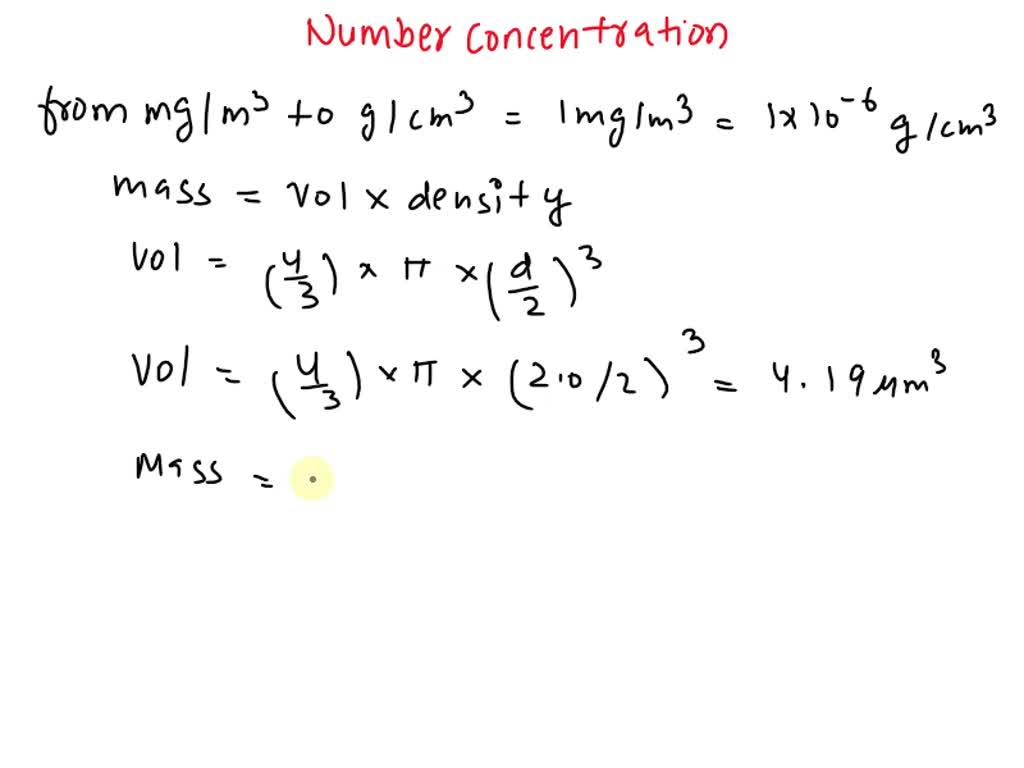 Number Concentration
from mg/m³ to g/cm³ = 1mg/m³ = 1×10⁻⁶ g/cm³
mass = vol × density
Vol = (4/3) × π × (d/2)³
Vol = (4/3) × π × (2.0/2)³ = 4.19 μm³
Mass =